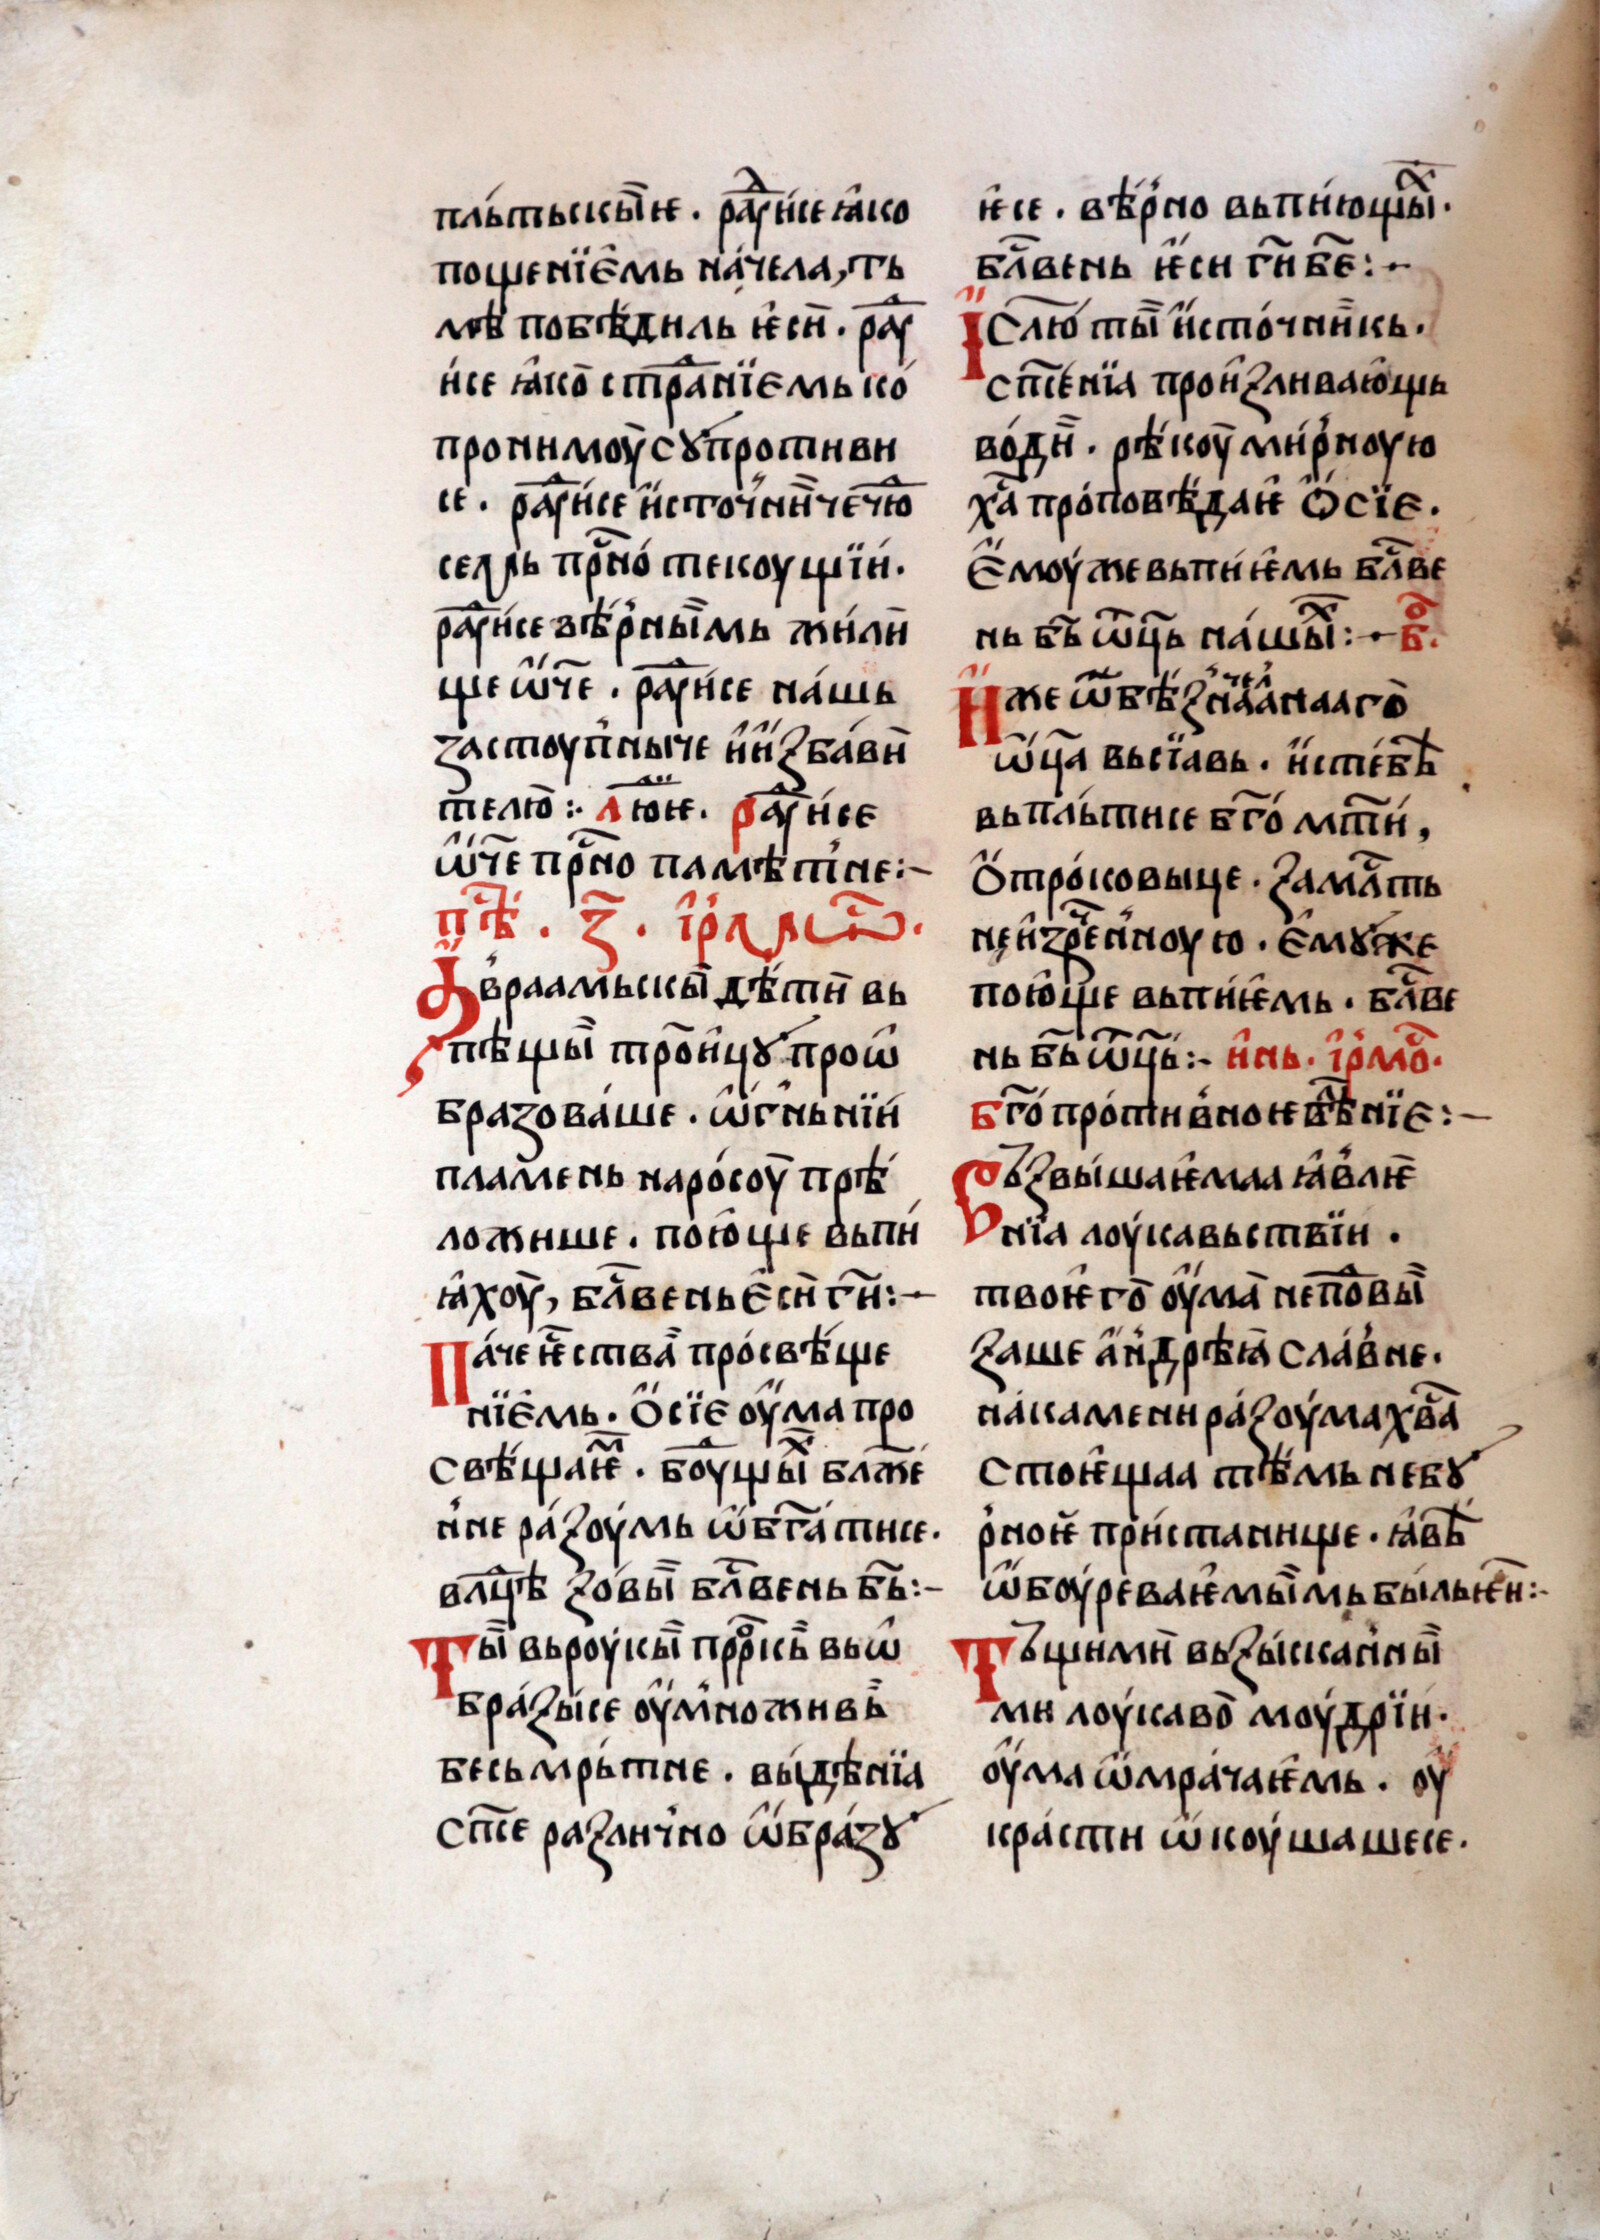 пль́тьскы̏ѥ . ра́дꙋ́исе ꙗ҆́ко
пощенїе҆мь на́чела , ть
мѣ побѣ́диль ѥ҆сѝ . рад꙯ꙋ
исе ꙗ҆́ко̀ стра̑нїемь ко́
пронимоу̀ сꙋ́противи
се . рад꙯ꙋ́исе и҆сто́чнѝче чю҆
се прⷭ҇но́ текоущїи́ .
рад꙯ꙋ́исе вѣ́рны̏мь жи́ли
ще ѡ҆҃че . рад꙯ꙋ́исе на́шь
застоу́пныче и҆ и҆зба́ви
телю̀ :· ра́дꙋ́исе
ѡ҆҃че прⷭ҇но памѣ́тне :~
пⷭ҇ѣ . з҃ . і҆рмѡⷭ .
А҆враамьскы̏ дѣ́тѝ вь
пѣщы̏ тро̀и҆цꙋ проѡ
бразова́ше . ѡ҆́гньнїи́
пламень на ро́соу̀ прѣ
ложише . пою҆ще вьпи́
ꙗ҆́хоу̀ , блⷭ҇вень е҆сѝ гѝ҃ :~
Па́че ѥ҆ства̀ просвѣ́ще
нїе҆мь . О҆сїе оу҆ма про
свѣ́щаѥⷨ . боу́щы̏ⷯ бла́же
н́не ра́зоумь ѡ҆бга́҃тисе .
влⷣцѣ зо́вы̏ блⷭ҇вень бь҃ :~
Ты̏ вь роу́кы̏ прⷪ҇ркь̀ вьѡ
бра́зы́се оу҆́множивь̀
бесьмрь́тне . вы́дѣ́нїа
сп҃се различ́но ѡ҆бра́зꙋ
ѥ҆се . вѣ́рно вьпи́ющы̏ⷯ .
блⷭ҇вень ѥ҆си ги҃ бе҃ :~
І҆слю҃ ты̏ и҆сто́чнѝкь .
сп҃се́нїа прои҆зливаю҆щь
во́дѝ . рѣ́коу̀ мир́ноую
ха҃ пропо́вѣ́даѥ О҆сїе .
Е҆моу́же вьпи́ѥ҆мь блⷭ҇ве
нь бь҃ ѡ҆҃ць на́шы̏ⷯ :~ бⷪ҇ .
И҆же ѿ бѣзначелна́аго̀
ѡ҆ц҃а вьсїа́вь . и҆с те́бѣ̀
вь пль́тисе бг҃о мт҃и ,
О҆тро́ковыце . за млⷭ҇ть
неи҆зрⷱ҇ен́ноую . Е҆мꙋ́же
пою҆ще вьпи́ѥ҆мь . блⷭ҇ве
нь бь҃ ѡ҆҃ць :~ и҆нь . і҆рмⷪ҇ .
Бг҃опроти́вноѥ влⷣѣнїе :~
Вьзвы́шаѥ҆маа ꙗ҆́влѥ
нїа лоука́вьствїи .
твоѥ҆го̀ оу҆ма̀ не пⷪ҇вы̏
заше а҆ндрѣ́ꙗ̀ сла́вне .
на камени ра́зоума хв҃а
стоѥ҆щаа тѣ́мь небꙋ
р́ноѥ҆ при́станище . ꙗ҆́вѣ̀
ѡ҆боу́реваѥ҆мы̏мь бы́ль ѥ҆сѝ :~
Тьщимѝ вьзы́скан́ны̏
ми лоука́во̀ моу́дрїи .
оу҆ма ѡ҆мра́чаѥ҆мь . оу҆
кра́сти ѡ҆коу́шашесе .